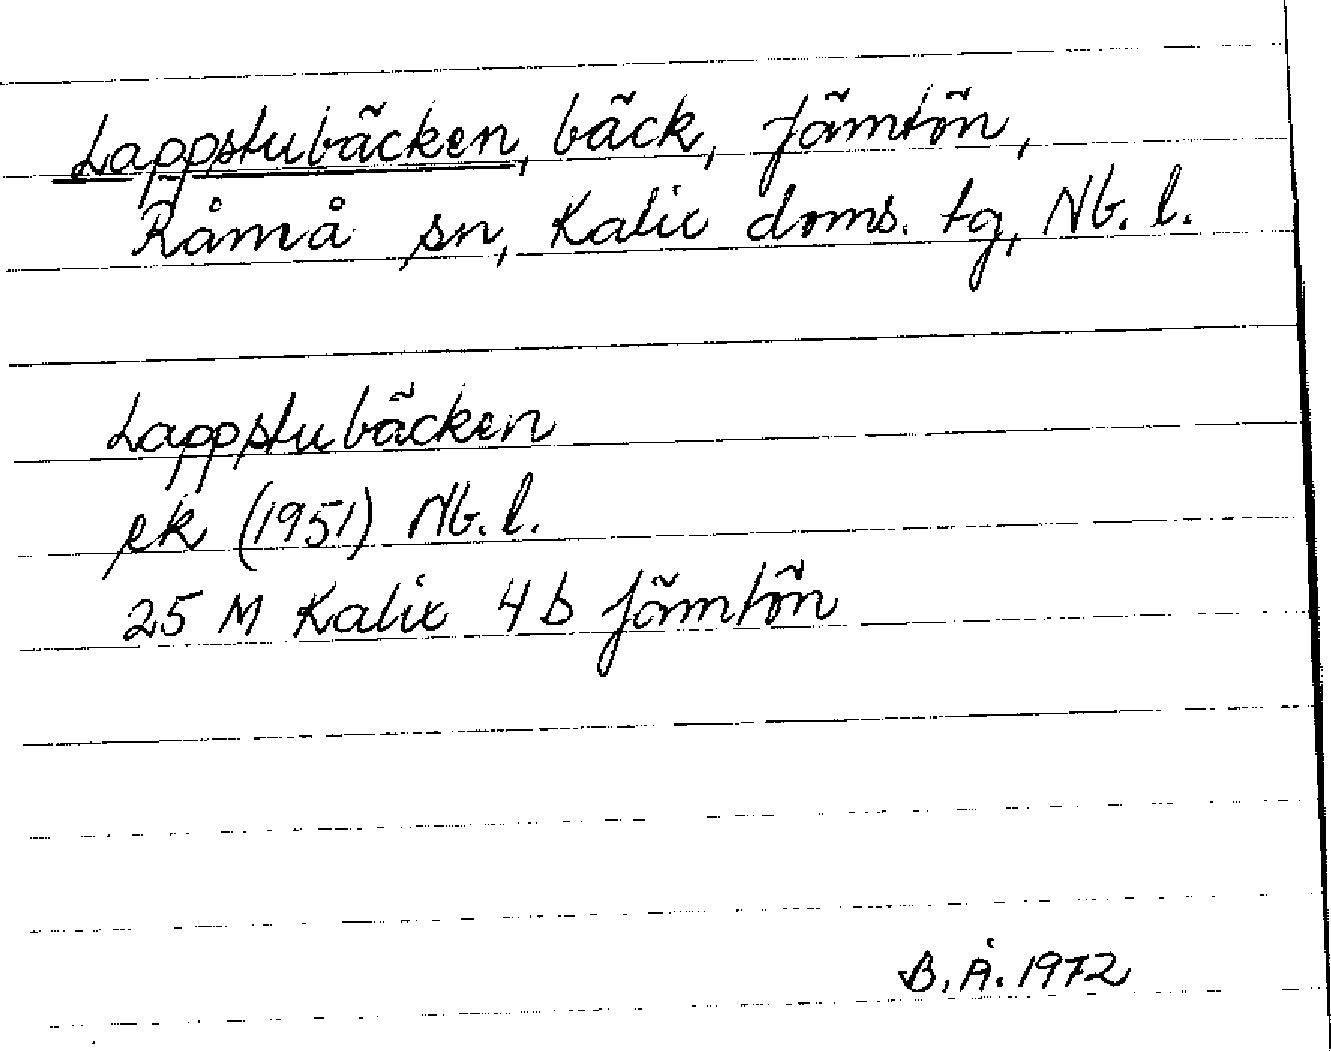 Lappstubäcken, bäck, Jämtön,
Råneå sn, Kalix doms. tg, Nb. l.
Lappstubäcken
ek (1951) Nb. l.
25 M Kalix 4 b Jämtön
B. Å. 1972